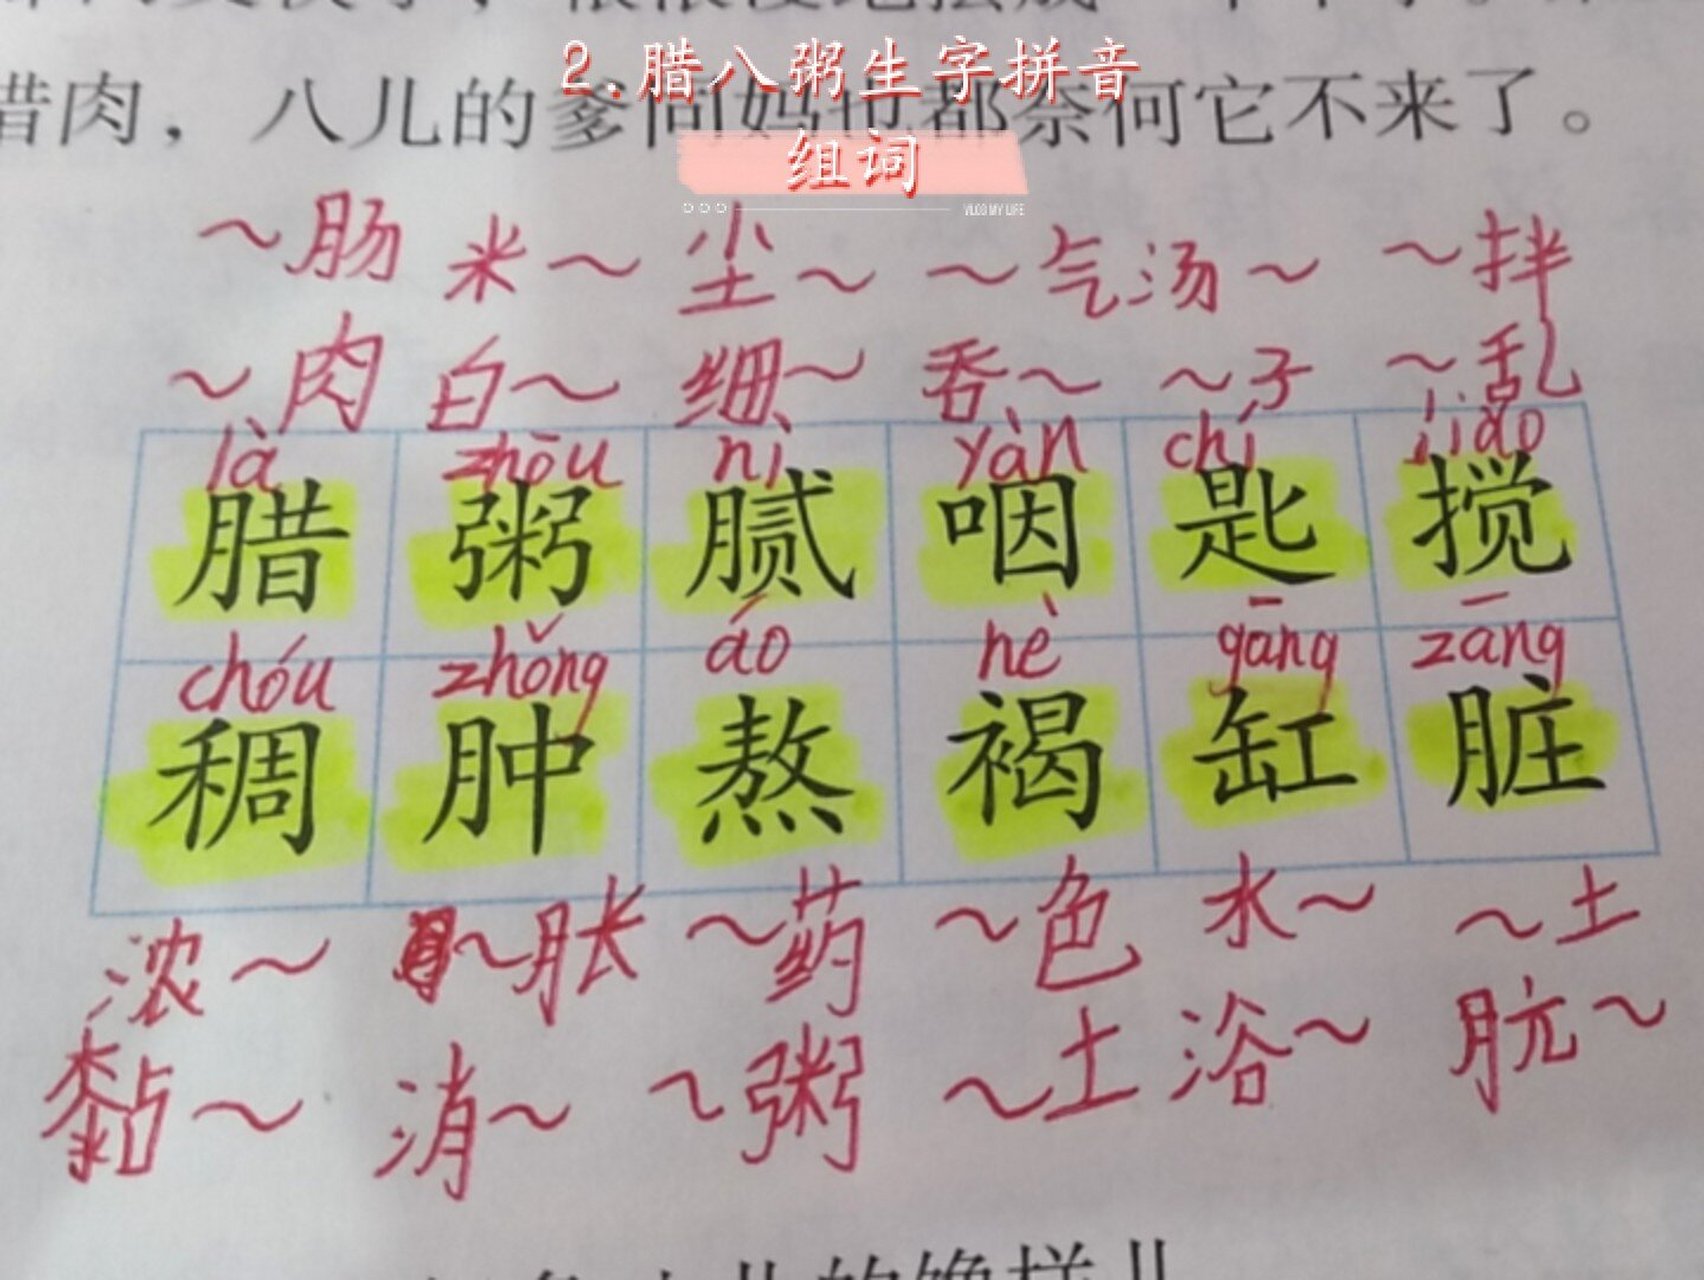 2.腊八粥生字拼音
组词
VLOG MY LIFE
腊肉，八儿的爹同妈也都奈何它不来了。
～肠 米～ 尘～ ～气 汤～ ～拌
～肉 白～ 细～ 吞～ ～子 ～乱
là zhōu nì yàn chí jiǎo
腊 粥 腻 咽 匙 搅
chóu zhǒng áo hè gāng zāng
稠 肿 熬 褐 缸 脏
浓～ ～胀 ～药 ～色 水～ ～土
黏～ 消～ ～粥 ～土 浴～ 肮～